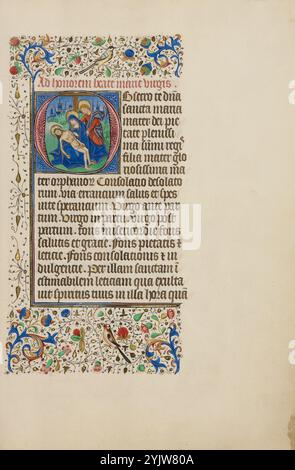 Ad honorem beate marie virgis.
Obsecro te dña
sancta maria
mater dei pie
tate plenissi
ma sũmi regꝭ
filia mater glo
riosissima ma
ter orphanoꝝ Consolatio desolato
rum. via errancium salus et spes
in te sperancium Virgo ante par
tum. Virgo in partu Virgo post
partum. Fons misericordie fons
salutis et gracie. Fons pietatis et
leticie. Fons consolationis et in
dulgencie. Per illam sanctam i
estimabilem leticiam qua exulta
uit spiritus tuus in illa hora quã
alamy
Image ID: 2YJW80A
www.alamy.com